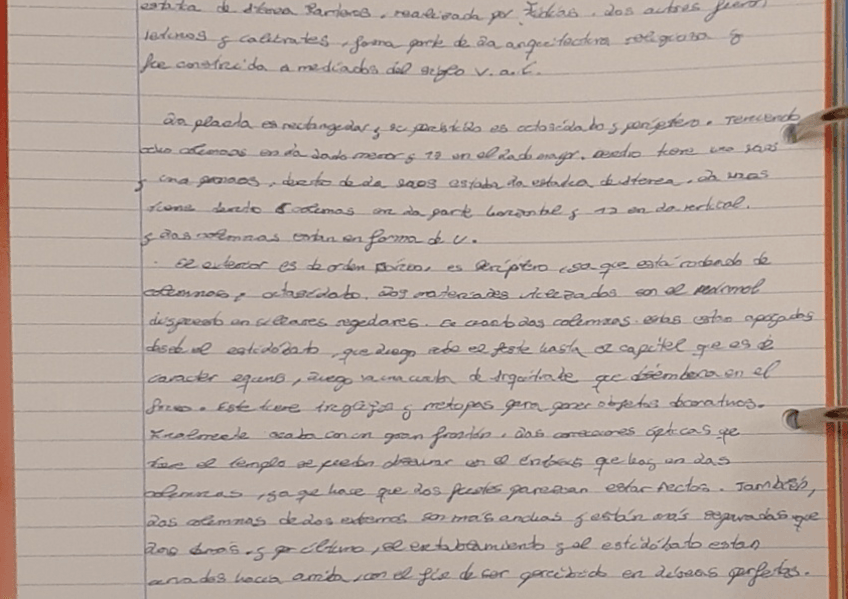 estatua de Atenea Partenos, realizada por Fidias. Los autores fueron
Ictinos y Calícrates, forma parte de la arquitectura religiosa y
fue construida a mediados del siglo V. a.C.
La planta es rectangular y su peristilo es octosidato y períptero. Teneiendo
ocho columnas en la lado menor y 17 en el lado mayor. dentro tiene una naos
y una pronaos, dentro de la naos estaba la estatua de Atenea. La naos
tiene dentro 5 columnas en la parte horizontal y 12 en la vertical.
y las columnas estan en forma de U.
El exterior es de orden Dórico, es períptero, ya que está rodeado de
columnas y octosidato. Los materiales utilizados son el marmol
dispuesto en sillares regulares. En cuanto las columnas estas estan apoyadas
desde el estilóbato, que luego sube el fuste hasta el capitel que es de
caracter equino, luego va una cuarta de arquitrabe que desembora en el
friso. Este tiene triglifos y metopas para poner objetos decorativos.
Finalmente acaba con un gran frontón. Las correcciones ópticas que
tiene el templo se pueden observar en el éntasis que hay en las
columnas, ya que hace que los fustes parezcan estar rectos. También,
las columnas de los extremos son más anchas y están más separadas que
las demás. y por último, el entablamiento y el estilóbato estan
curvados hacia arriba, con el fin de ser percibido en líneas perfectas.